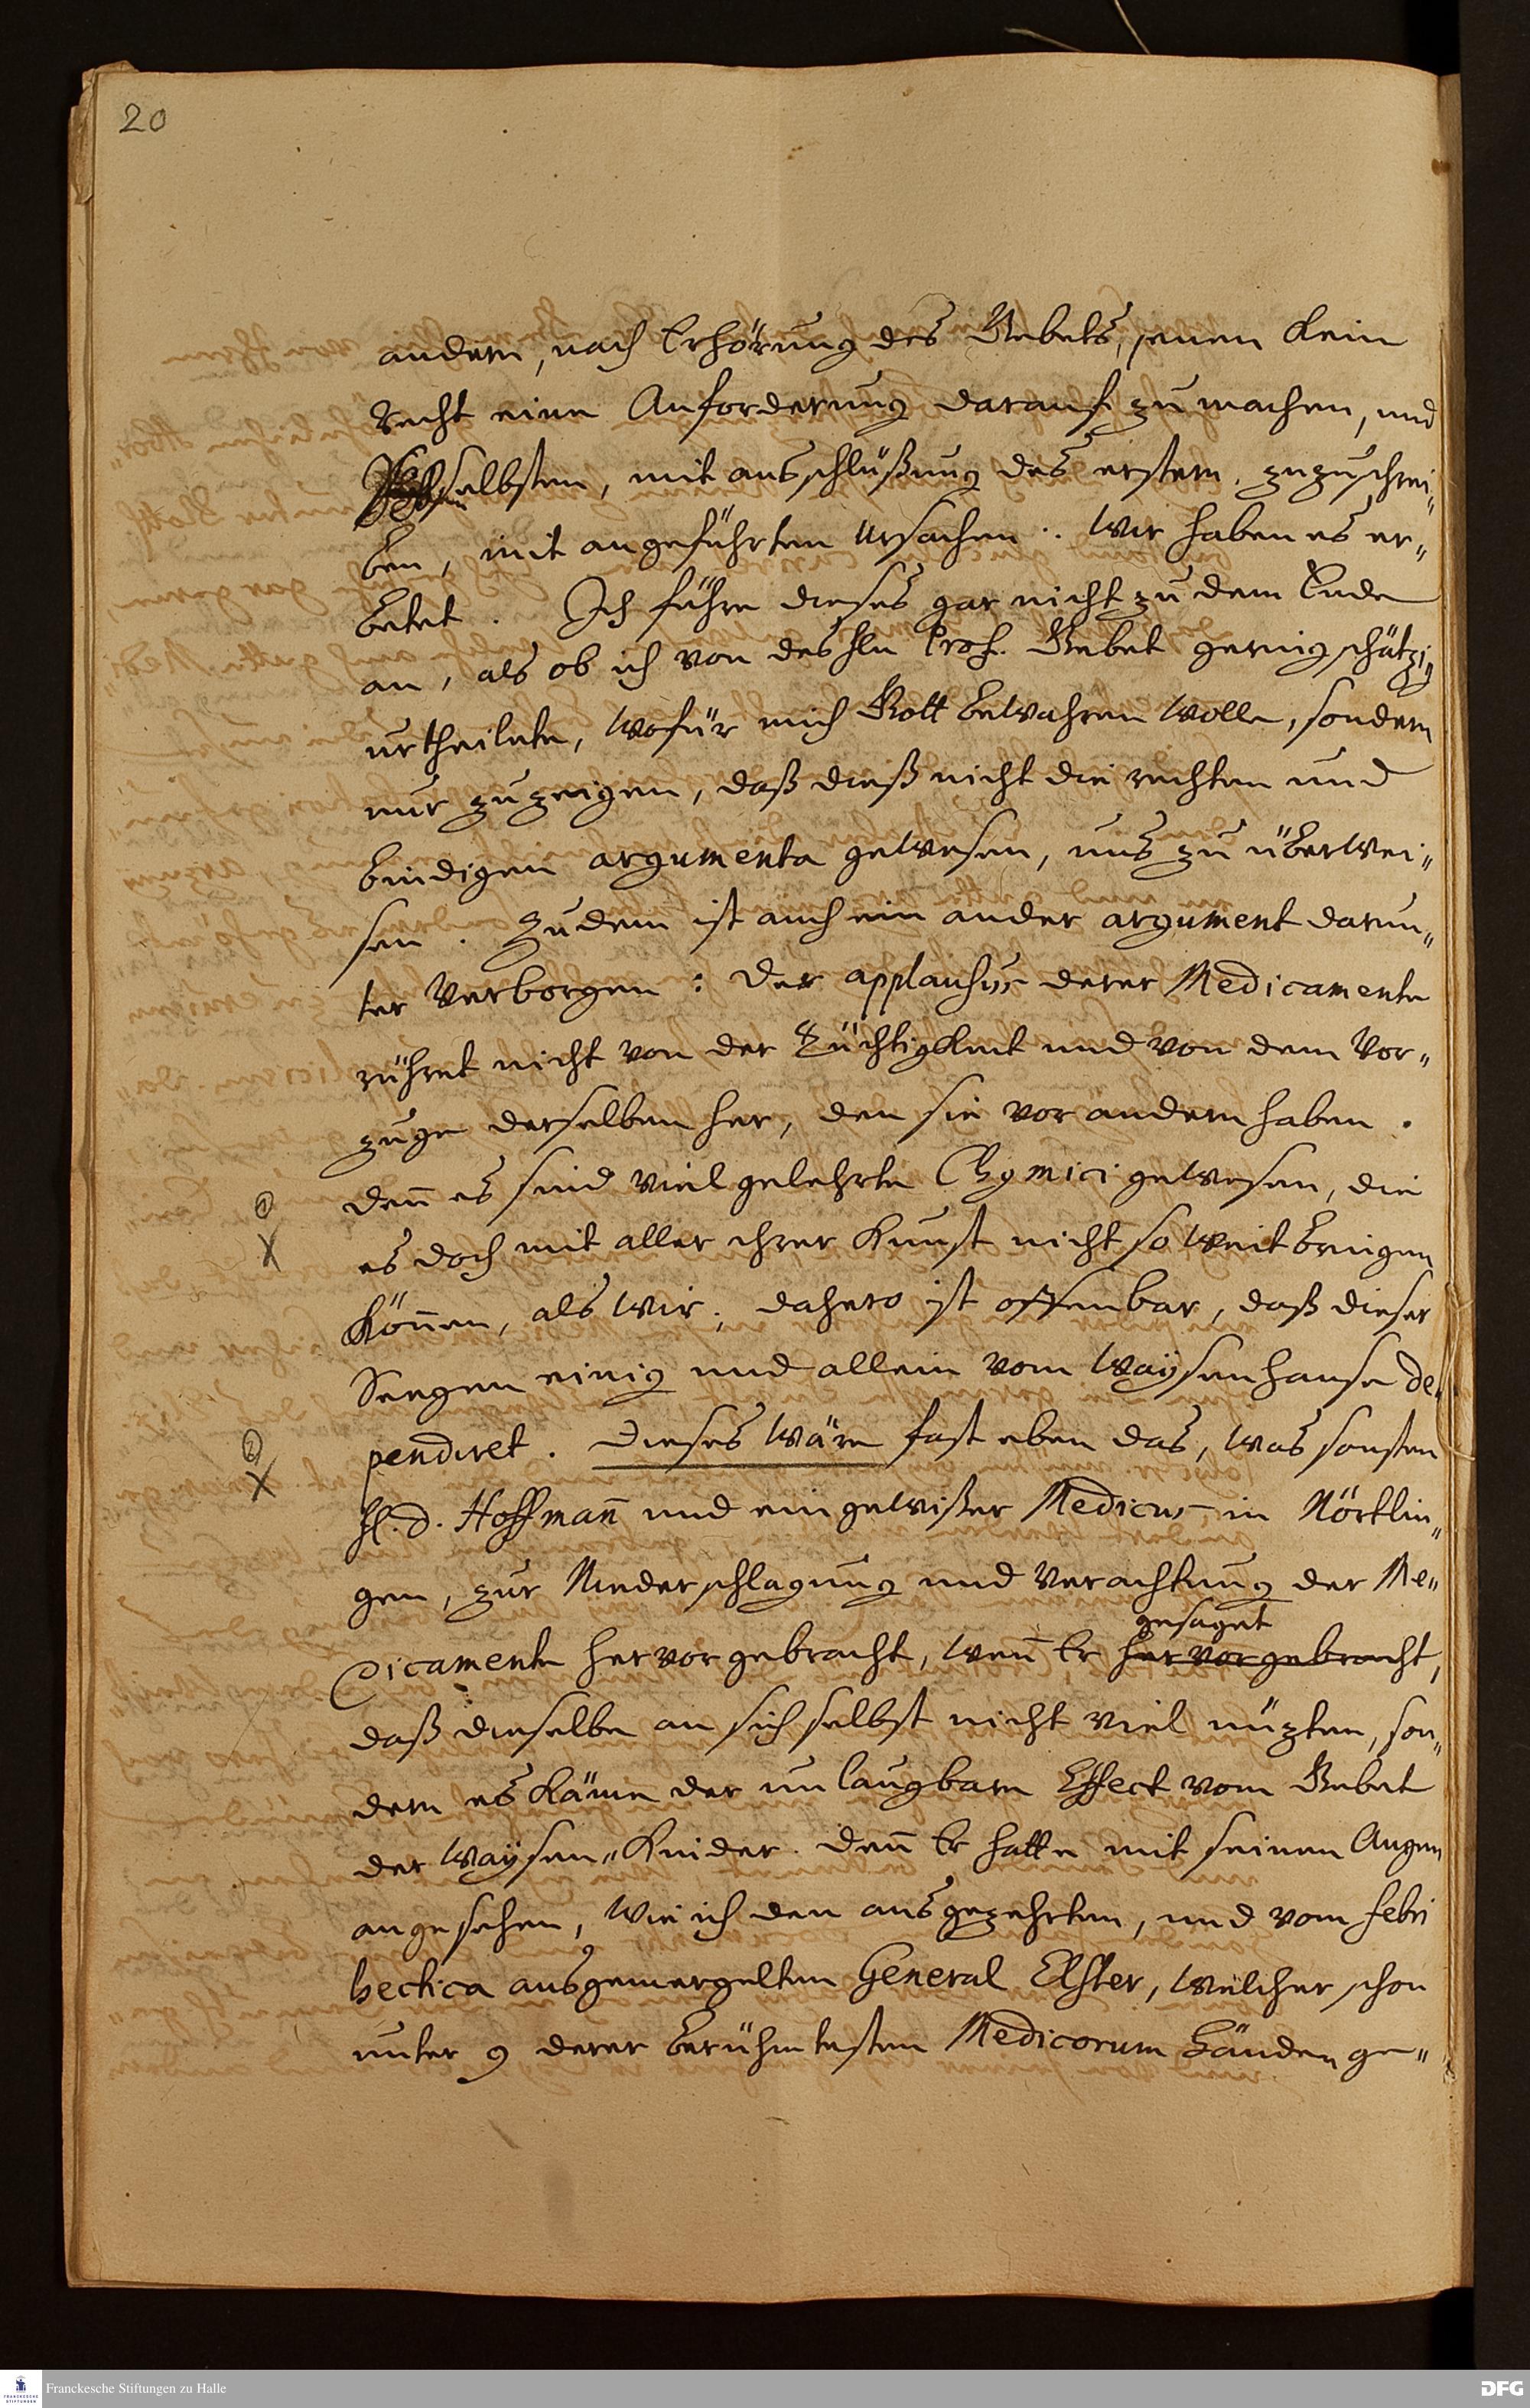 20
andern, nach Erhörung des Gebets, jenen kein
Recht eine Anforderung darauf zu machen, und
selbsten, mit ausschlüßung des erstern, zuzuschrei„
ben, mit angeführten Ursachen: wir haben es er„
betet. Ich führe dieses gar nicht zu dem Ende
an, als ob ich von des Hln Prof. Gebet geringschätzig
urtheilete, wofür mich Gott bewahren wolle, sondern
nur zu zeigen, daß dieß nicht die rechten und
bündigen argumenta gewesen, uns zu überwei„
sen. Zudem ist auch ein ander argument darun„
ter verborgen: der applausus derer Medicamente
rühret nicht von der Tüchtigkeit und von dem Vor„
zuge derselben her, den sie vor andern haben.
① den̄ es sind viel gelehrte Chymici gewesen, die
X es doch mit aller ihrer Kunst nicht so weit bringen
kön̄en, als wir; dahero ist offenbar, daß dieser
Seegen einig und allein vom Waÿsenhause de„
② pendiret. Dieses wäre fast eben das, was sonsten
X Hl. D. Hoffman̄ und ein gewißer Medicus in Nörtlin„
gen, zur Niederschlagung und Verachtung der Me„
gesaget
dicamente hervorgebracht, wen̄ Er hervorgebracht,
daß dieselbe an sich selbst nicht viel nüzten, son„
dern es käme der unlaugbare Effect vom Gebet
der Waÿsen„Kinder. den̄ Er hatte mit seinen Augen
angesehen, wie ich den ausgezehrten, und vom febri
hectica ausgemergelten General Elster, welcher schon
unter 9 derer berühmtesten Medicorum Händen ge„
Franckesche Stiftungen zu Halle
DFG